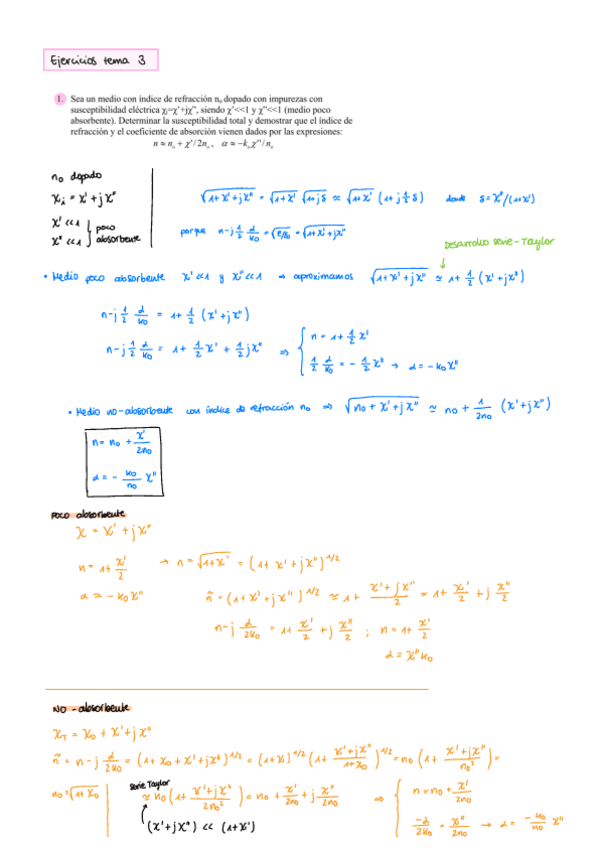 Ejercicios tema 3
1. Sea un medio con índice de refracción n₀ dopado con impurezas con
susceptibilidad eléctrica χᵢ=χ'+jχ'', siendo χ'<<1 y χ''<<1 (medio poco
absorbente). Determinar la susceptibilidad total y demostrar que el índice de
refracción y el coeficiente de absorción vienen dados por las expresiones:
n ≈ n₀ + χ'/2n₀ , α ≈ -k₀χ''/n₀
n₀ dopado
χᵢ = χ' + jχ''
χ' <<1
χ'' <<1 } poco absorbente
√(1+χ'+jχ'') = √(1+χ') √(1+jδ) ≃ √(1+χ') (1+j 1/2 δ) donde δ = χ''/(1+χ')
porque n-j 1/2 α/k₀ = √(ε/ε₀) = √(1+χ'+jχ'')
Desarrollo serie-Taylor
• Medio poco absorbente χ'<<1 y χ''<<1 → aproximamos √(1+χ'+jχ'') ≃ 1+ 1/2 (χ'+jχ'')
n-j 1/2 α/k₀ = 1+ 1/2 (χ'+jχ'')
n-j 1/2 α/k₀ = 1+ 1/2 χ' + 1/2 jχ'' ⇒ { n = 1+ 1/2 χ'
1/2 α/k₀ = - 1/2 χ'' → α = -k₀χ''
• Medio no-absorbente con índice de refracción n₀ ⇒ √(n₀+χ'+jχ'') ≃ n₀ + 1/2n₀ (χ'+jχ'')
n = n₀ + χ'/2n₀
α = - k₀/n₀ χ''
poco absorbente
χ = χ' + jχ''
n = 1+ χ'/2 → n = √(1+χ) = (1+χ'+jχ'')^1/2
α = -k₀χ'' ñ = (1+χ'+jχ'')^1/2 ≃ 1+ (χ'+jχ'')/2 = 1+ χ'/2 + j χ''/2
n-j α/2k₀ = 1+ χ'/2 + j χ''/2 ; n = 1+ χ'/2
α = χ''k₀
NO-absorbente
χ_T = χ₀ + χ'+jχ''
ñ = n-j α/2k₀ = (1+χ₀+χ'+jχ'')^1/2 = (1+χ₀)^1/2 (1+ (χ'+jχ'')/(1+χ₀))^1/2 = n₀ (1+ (χ'+jχ'')/n₀²) =
n₀ = √(1+χ₀) serie Taylor ≃ n₀ (1+ (χ'+jχ'')/2n₀²) = n₀ + χ'/2n₀ + j χ''/2n₀ ⇒ { n = n₀ + χ'/2n₀
(χ'+jχ'') << (1+χ₀)
-α/2k₀ = χ''/2n₀ → α = -k₀/n₀ χ''